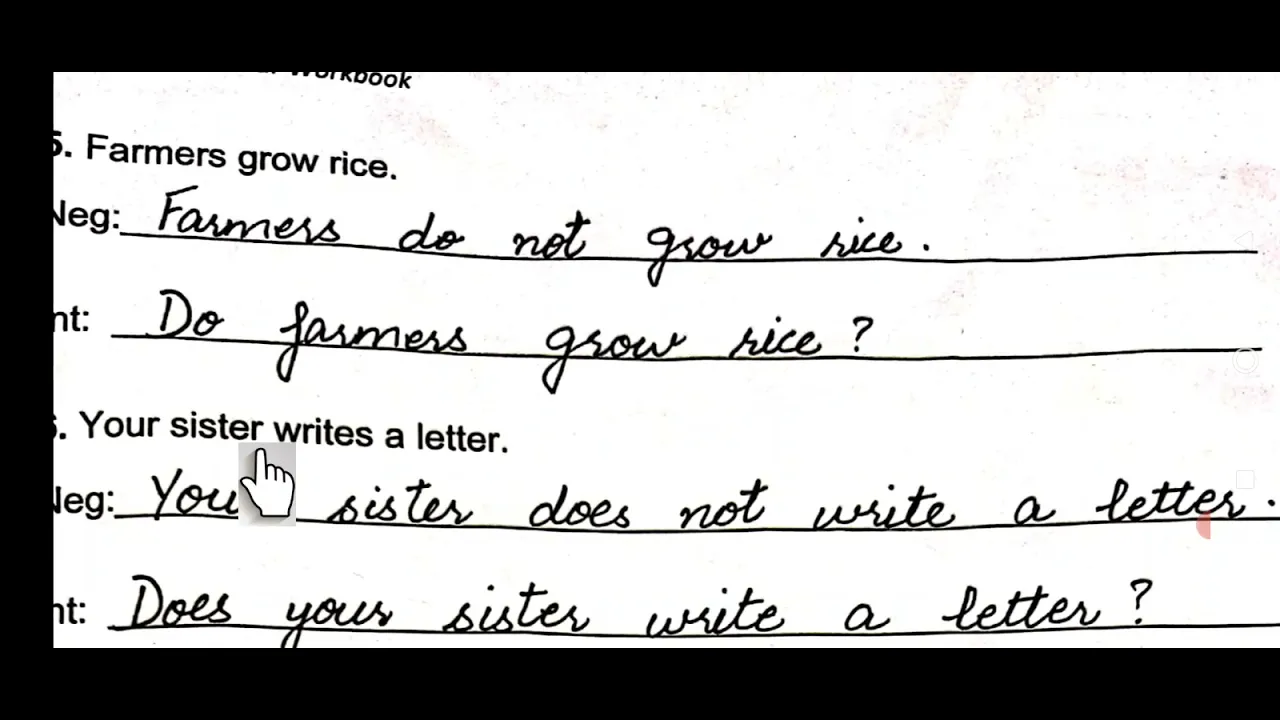 Workbook
5. Farmers grow rice.
Neg: Farmers do not grow rice.
nt: Do farmers grow rice?
6. Your sister writes a letter.
Neg: You sister does not write a letter.
nt: Does your sister write a letter?